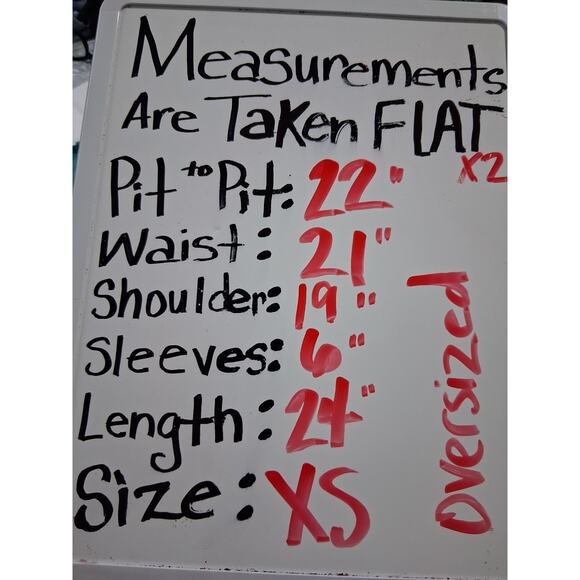 Measurements
Are Taken FLAT
X2
Pit to Pit: 22"
Waist: 21"
Shoulder: 19"
Sleeves: 6"
Length: 24"
Size: XS
Oversized